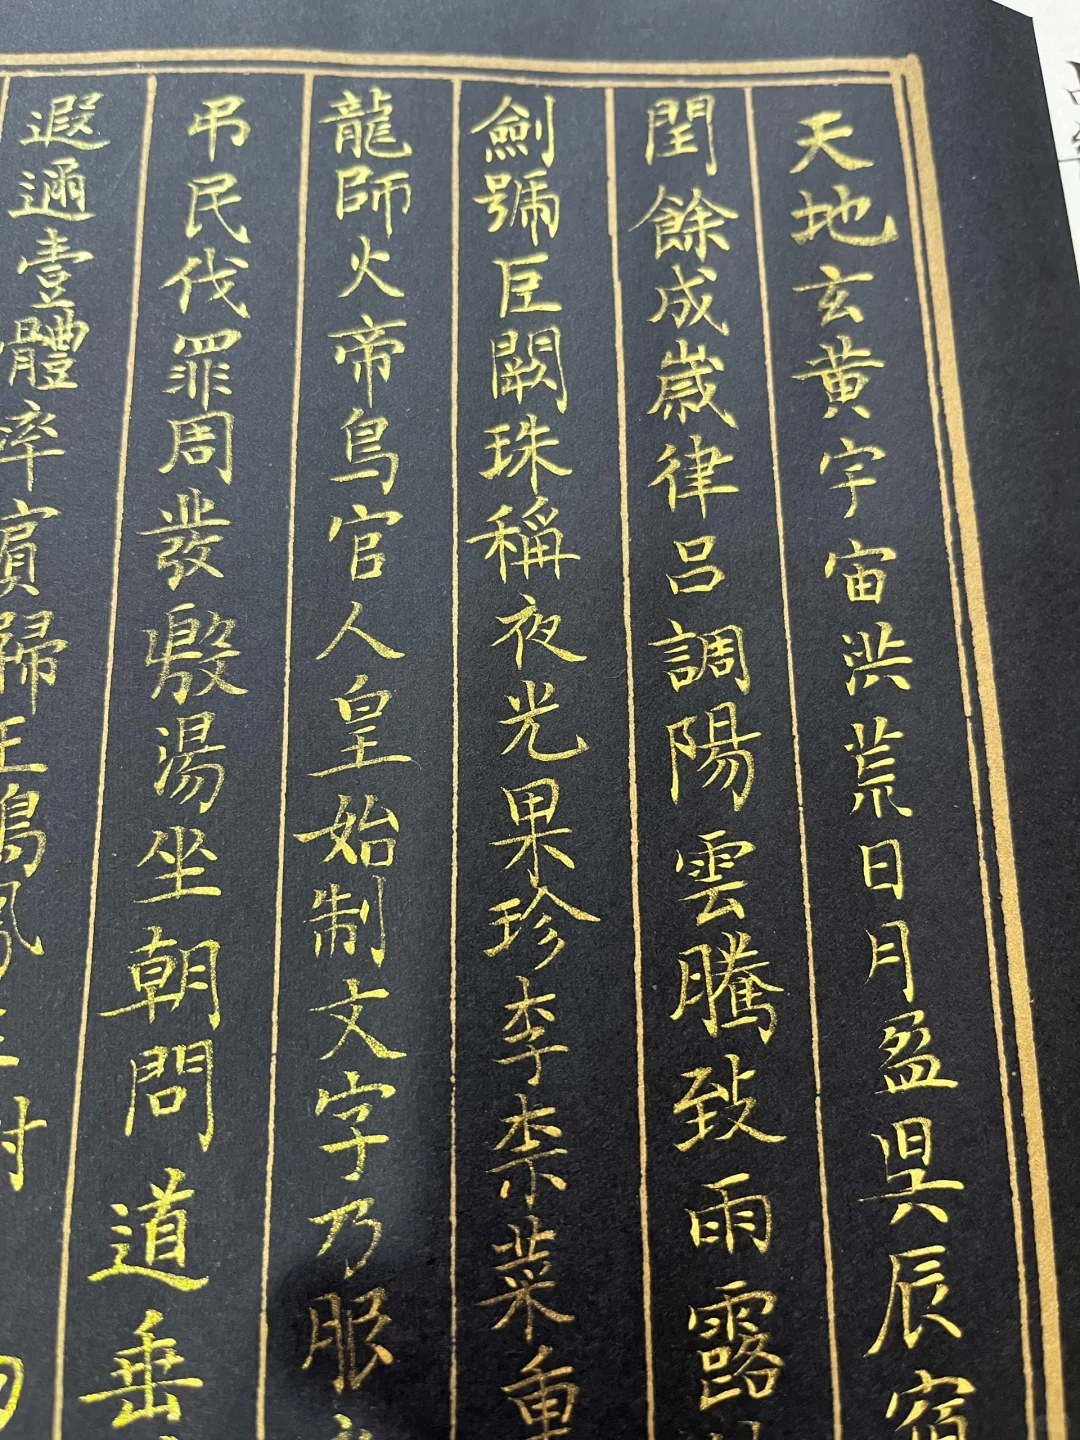 天地玄黃宇宙洪荒日月盈昃辰宿
閏餘成歲律呂調陽雲騰致雨露
劍號巨闕珠稱夜光果珍李柰菜重
龍師火帝鳥官人皇始制文字乃服
弔民伐罪周發殷湯坐朝問道垂
遐邇壹體率賓歸王鳴鳳